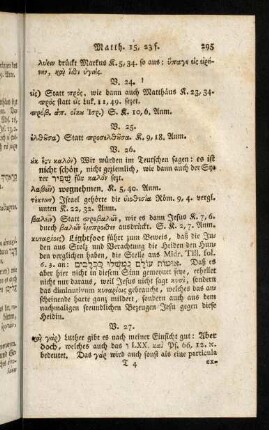 Matth. 15, 23 f. 295
λυειν drückt Markus K. 5, 34. so aus: ὑπαγε εἰς εἰρη-
νην, καὶ ἰσθι ὑγιὴς.
V. 24.
εἰς) Statt πρός, wie dann auch Matthäus K. 23, 34.
πρὸς statt εἰς Luk. 11, 49. setzt.
πρόβ. ἀπ. οἰκου Ἰσρ.) S. K. 10, 6. Anm.
V. 25.
ἐλθοῦσα) Statt προσελθοῦσα. K. 9, 18. Anm.
V. 26.
οὐκ ἐστι καλὸν) Wir würden im Teutschen sagen: es ist
nicht schön, nicht geziemlich, wie dann auch der Sy-
rer שפיר für καλὸν setzt.
λαβεῖν) wegnehmen. K. 5, 40. Anm.
τέκνων) Israel gehörte die υἱοθεσία Röm. 9, 4. vergl.
unten K. 22, 32. Anm.
βαλεῖν) Statt προβαλεῖν, wie es dann Jesus K. 7, 6.
durch βαλεῖν ἔμπροσθεν ausdrückt. S. K. 2, 7. Anm.
κυναρίοις) Lightfoot führt zum Beweis, daß die Ju-
den aus Stolz und Verachtung die Heiden den Hun-
den verglichen haben, die Stelle aus Midr. Till. fol.
6. 3. an: אומות עולם נמשלו ככלבים. Daß
aber hier nicht in diesem Sinn geredet seye, erhellet
nicht nur daraus, weil Jesus nicht sagt κυσὶ, sondern
das diminutivum κυναρίοις gebraucht, welches das an-
scheinende harte ganz mildert, sondern auch aus dem
nachfolgenden freundlichen Bezeugen Jesu gegen diese
Heidin.
V. 27.
καὶ γὰρ) Luther gibt es nach meiner Einsicht gut: Aber
doch, welches auch das ו LXX. zu Ps. 66, 12. x.
bedeutet. Das γὰρ wird auch sonst als eine particula
T 4 ex-